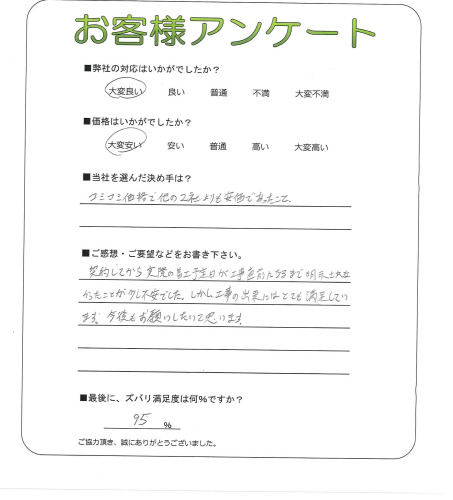 お客様アンケート
■弊社の対応はいかがでしたか？
大変良い 良い 普通 不満 大変不満
■価格はいかがでしたか？
大変安い 安い 普通 高い 大変高い
■当社を選んだ決め手は？
コミコミ価格で他の2社よりも安価であったこと。
■ご感想・ご要望などをお書き下さい。
契約してから実際の着工予定日が工事直前になるまで明示されな
かったことが少し不安でした。しかし工事の出来にはとても満足してい
ます。今後もお願いしたいと思います。
■最後に、ズバリ満足度は何%ですか？
95 %
ご協力頂き、誠にありがとうございました。